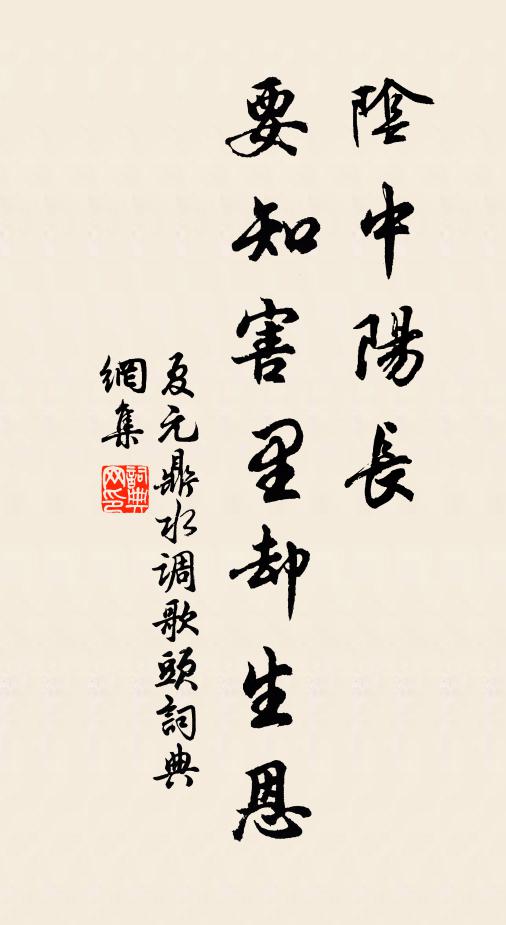 陰中陽長
要知害里却生恩
夏元鼎水调歌頭詞典
網集
詞典網印